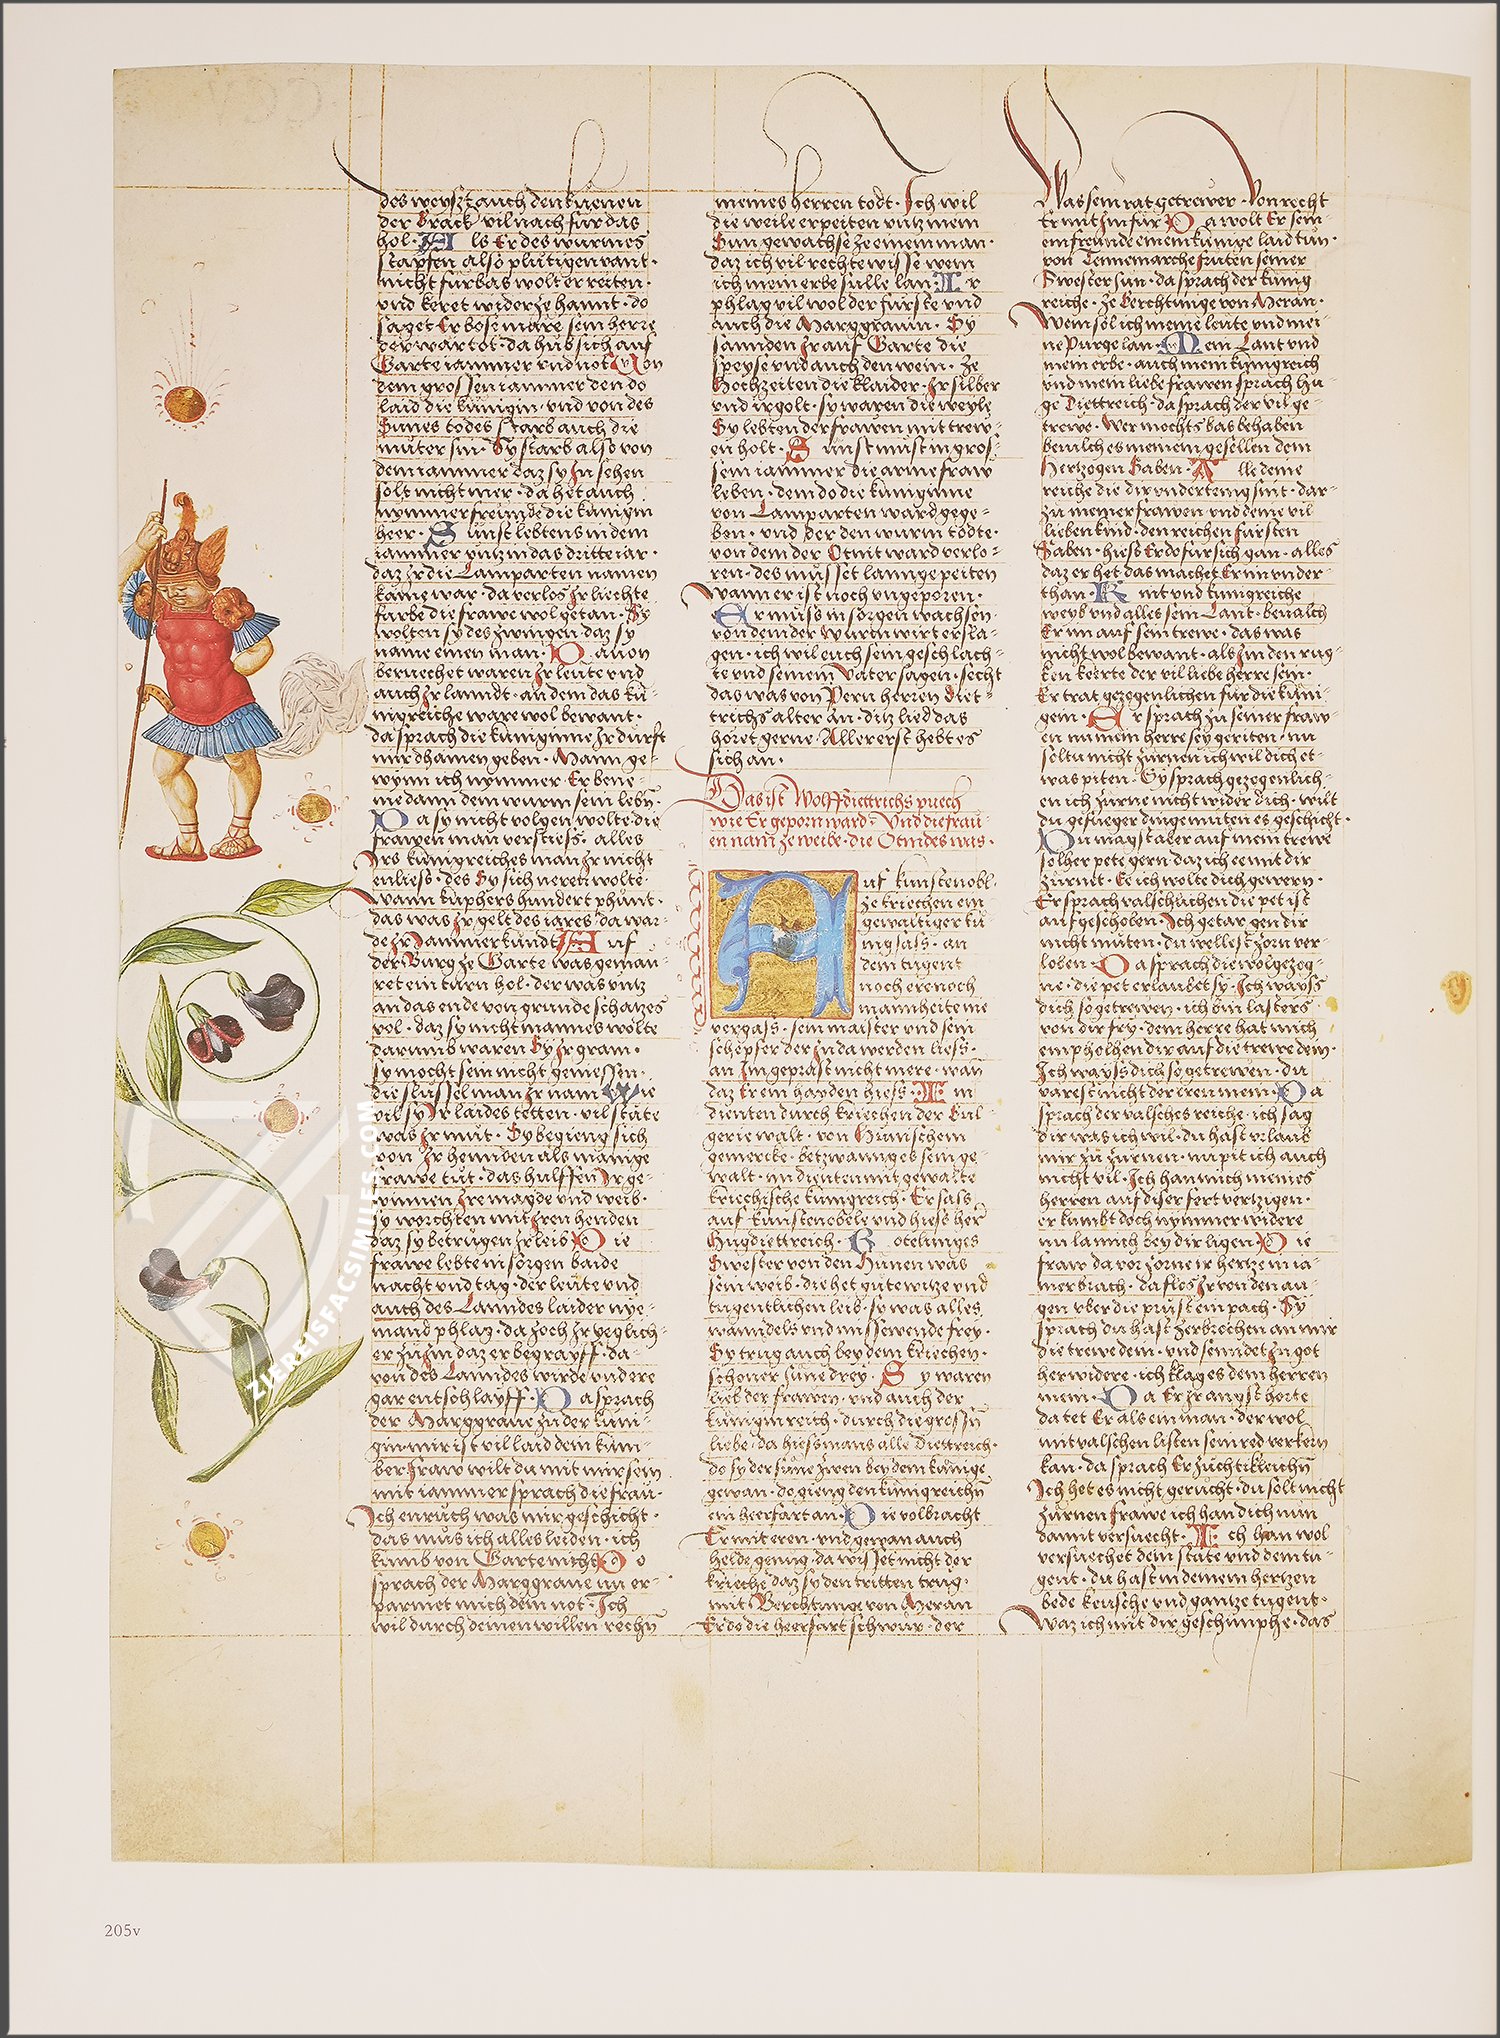 des weyszt auch den kuenen
der Prack vil nach für das
hol · Als Er des wurmes
stapfen also plutigen vant ·
nicht fürbas wolt er reiten ·
vnd keret wider ze hannt · do
saget Er böse märe sein herre
der wär tot · da hůb sich auf
Garte iammer vnd not · Von
dem grossen iammer den do
laid die künigin · vnd von des
Sunes todes starb auch die
můter sin · Sy starb also von
dem iammer daz sy In sehen
solt nicht mer · da het auch
nymmer freunde die künigin
heer · Sunst lebtens in dem
iammer vntz in das dritte iar ·
daz Ir die Lamparten namen
kame war · da verlos Ir liechte
farbe die frawe wol getan · Sy
wolten sy des zwingen daz sy
näme einen man · Dauon
beruechet waren Ir leute vnd
auch Ir lanndt · an dem das kü-
nigreiche ware wol bewant ·
da sprach die küniginne Ir durft
mir dhainen geben · Mann ge-
wynn ich nymmer Er bene-
me dann dem wurm sein lebn̄ ·
Da sy nicht volgen wolte die
frawen man verstiess · alles
Irs künigreiches man Ir nicht
enliess · des Sy sich neren wolte ·
wann kuphers hundert phunt ·
das was Ir gelt des iares · da war-
de Ir Jammer kundt · Auf
der Burg ze Garte was geman-
ret ein turn hol · der was vntz
an das ende von grunde schatzes
vol · daz sy nicht mannes wolte
darumb waren Sy Ir gram ·
sy mocht sein nicht geniessen ·
die slüssel man Ir nam · Wie
vil sy Ir laides tetten · vil stäte
was Ir můt · Sy begieng sich
von Ir hennden als manige
frawe tůt · das hulffen Ir ge-
winnen Ire magde vnd weib ·
sy worchten mit Iren henden
daz sy betrügen Ir leib · Die
frawe lebte in sorgen baide
nacht vnd tag · der leute vnd
auch des Lanndes laider nye-
mand phlag · da zoch Ir yeglich-
er zů zin daz er begrayff · da-
von des Lanndes wirde vnd ere
gar entschlayff · Da sprach
der Marggraue zu der küni-
gin · mir ist vil laid dein kum-
ber · fraw wilt du mit mir sein
mit iammer sprach die frau ·
Ich enruch was mir geschicht ·
das můs ich alles leiden · ich
kumb von Garte nicht · Do
sprach der Marggraue nu er-
parmet mich dein not · Ich
wil durch deinen willen rechn̄
meines herren todt · Ich wil
die weile erpeiten vntz mein
Sun gewachse ze einem man ·
daz ich vil rechte wisse wem
ich mein erbe sülle lan · Ir
phlag vil wol der fürste vnd
auch die Marggrauin · Sy
sannden Ir auf Garte die
speyse vnd auch den wein · Ze
Hochzeiten die klaider · Ir silber
vnd ir golt · sy waren die weyle
Sy lebten der frawen mit trew-
en holt · Sunst můst in gros-
sem iammer die arme fraw
leben · dem do die küniginne
von Lamparten ward gege-
ben · vnd der den wurm tödte ·
von dem der Otnit ward verlo-
ren · des můsset lannge peiten
Wann er ist noch vngeporen ·
Er můss in sorgen wachsen ·
von dem der wurm wirt ersla-
gen · ich wil euch sein geschlach-
te vnd seinem vater sagen · secht
das was von Pern herren Diet-
trichs alter än · ditz lied das
höret gerne · Allererst hebt es
sich an ·
Das ist Wolffdiettrichs puech
wie Er geporn ward · Vnd die frau-
en nam ze weibe · die Otnides was ·
Auf kunstenobl ·
ze kriechen ein
gewaltiger kü-
nig sass · an
dem tugent
noch ere noch
mannheite nie
vergass · sein maister vnd sein
schepfer der In da werden liess ·
an Im geprast nicht mere · wan̄
daz Er ein hayden hiess · Im
dienten durch kriechen der Bul-
gerie walt · von Hunischem
gemercke · betzwannges sein ge-
walt · im dienten mit gewalte
kriechische künigreich · Er sass
auf kunstenobele vnd hiess her̄
Hugdiettreich · Botelunges
Swester von den Hünen was
sein weib · die het gůte witze vnd
tugentlichen leib · so was alles
wanndels vnd missewende frey ·
Sy trůg auch bey dem kriechen ·
schöner süne drey · Sy waren
lieb der frawen · vnd auch der
künigin reich · durch die grossn̄
liebe · da hiess mans alle Diettreich ·
do sy der süne zwen bey dem künige
gewan · do gieng den künigreichn̄
ein heerfart an · Die volbracht
Er mit eren · vnd gewan auch
helde genůg · da wisset nicht der
krieche daz sy den tritten trůg ·
mit Berchtung von Meran
Er do die heerfart schwůr · der
Was sein rat getrewer · Von recht
Er mit Im fůr · Da wolt Er sein-
em freunde einem künige laid tůn ·
von Tennemarche frůten seiner
Swester sun · da sprach der künig
reiche · ze Berchtunge von Meran ·
Wem sol ich meine leute vnd mei-
ne Purge lan · Mein Lant vnd
mein erbe · auch mein künigreich
vnd mein liebe frawen sprach Hu-
ge Diettreich · da sprach der vil ge-
trewe · Wer mocht s bas behaben
beuilch es meinem gesellen dem
Hertzogen Saben · Alle deine
reiche die dir vndertenig sint · dar-
zu meiner frawen vnd deine vil
lieben kind · den reichen fürsten
Saben · hiess Er do für sich gan · alles
daz er het das machet Er im vnder-
than · Kint vnd künigreiche
weyb vnd alles sein Lant · beualch
Er im auf sein trewe · das was
nicht wol bewant · als In den rug-
ken kerte der vil liebe herre sein ·
Er trat gezogenlichen für die küni-
gein · Er sprach zu seiner fraw-
en nu mein herre sey geriten · nu
soltu nicht zürnen ich wil dich et-
was piten · Sy sprach gezogenlich-
en ich zürne nicht wider dich · wilt
du gefüeger dinge muten es geschicht ·
Du magst aber auf mein trewe
solher pete gern daz ich ee mit dir
zürnet · Ee ich wolte dich gewern ·
Er sprach valschlichen die pet ist
auf geschoben · Ich getar gen dir
nicht můten · du wellest zorn ver-
loben · Da sprach die wolgezog-
ne · die pet erlaubet sy · Ich wayss
dich so getrewen · ich bin lasters
von dir fry · dein herre hat mich
empholhen dir auf die trewe dein ·
Ich wayss dich so getrewen · du
varest nicht der eren mein · Da
sprach der valsches reiche · ich sag
dir was ich wil · du hast vrlaub
mir zů zürnen · nu pit ich auch
nicht vil · Ich han mich meines
herren auf diser fert vertzigen ·
er kumbt doch nymmer widere
nu la mich bey dir ligen · Die
fraw da vor zorne ir hertze in ia-
mer brach · da flos Ir von den au-
gen vber die prüst ein pach · Sy
sprach du hast zerbrechen an mir
die trewe dein · vnd senndet In got
her widere · ich klag es dem herren
mein · Da Er Ir angst horte
da tet Er als ein man · der wol
mit valschen listen sein red verkern
kan · da sprach Er züchtikleichn̄
Ich het es nicht gerucht · du solt nicht
zürnen frawe ich han dich nun
damit versuecht · Ich han wol
versuechet dein stäte vnd dein tu-
gent · du hast in deinem hertzen
bede keusche vnd gantze tugent ·
Waz ich mit dir geschimphe · das
205v
ZIEREISFACSIMILES.COM